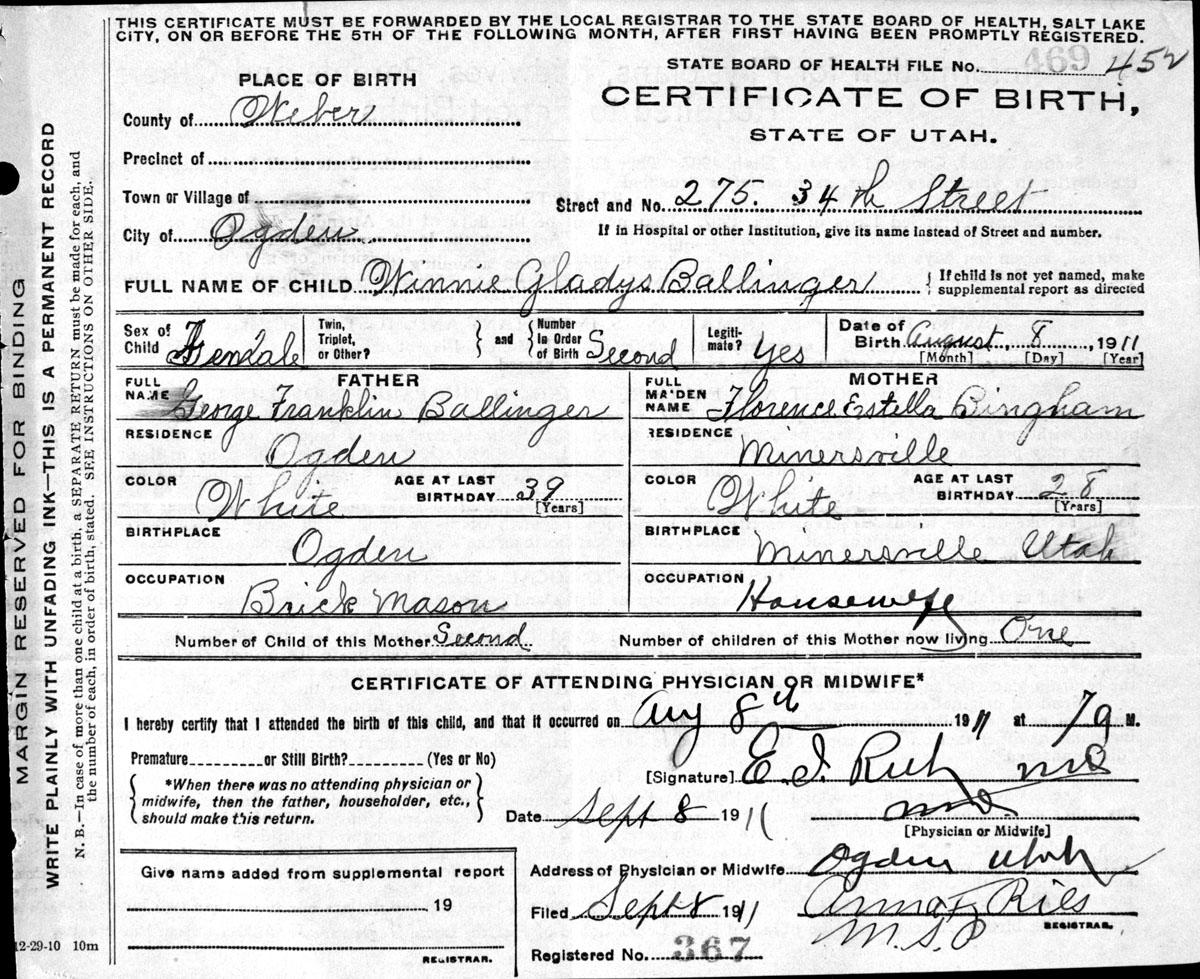 THIS CERTIFICATE MUST BE FORWARDED BY THE LOCAL REGISTRAR TO THE STATE BOARD OF HEALTH, SALT LAKE
CITY, ON OR BEFORE THE 5TH OF THE FOLLOWING MONTH, AFTER FIRST HAVING BEEN PROMPTLY REGISTERED.
STATE BOARD OF HEALTH FILE No. 469 452
PLACE OF BIRTH
CERTIFICATE OF BIRTH,
STATE OF UTAH.
County of Weber
Precinct of
Town or Village of
Street and No. 275. 34th Street
City of Ogden
If in Hospital or other Institution, give its name instead of Street and number.
FULL NAME OF CHILD Winnie Gladys Ballinger
If child is not yet named, make
supplemental report as directed
Sex of Child Female
Twin, Triplet, or Other?
and
Number in Order of Birth Second
Legitimate? Yes
Date of Birth August 8, 1911
[Month] [Day] [Year]
FATHER
FULL NAME George Franklin Ballinger
RESIDENCE Ogden
COLOR White
AGE AT LAST BIRTHDAY 39
[Years]
BIRTHPLACE Ogden
OCCUPATION Brick Mason
MOTHER
FULL MAIDEN NAME Florence Estella Bingham
RESIDENCE Minersville
COLOR White
AGE AT LAST BIRTHDAY 28
[Years]
BIRTHPLACE Minersville Utah
OCCUPATION Housewife
Number of Child of this Mother Second
Number of children of this Mother now living One
CERTIFICATE OF ATTENDING PHYSICIAN OR MIDWIFE*
I hereby certify that I attended the birth of this child, and that it occurred on Aug 8th 1911 at 7 a M.
Premature or Still Birth? (Yes or No)
*When there was no attending physician or
midwife, then the father, householder, etc.,
should make this return.
[Signature] E. I. Rich MD
Date Sept 8 1911
MD.
[Physician or Midwife]
Give name added from supplemental report
19
REGISTRAR.
Address of Physician or Midwife Ogden Utah
Filed Sept 8 1911
Anna F Ries
REGISTRAR.
Registered No. 367
12-29-10 10m
MARGIN RESERVED FOR BINDING
WRITE PLAINLY WITH UNFADING INK—THIS IS A PERMANENT RECORD
N. B.—In case of more than one child at a birth, a SEPARATE RETURN must be made for each, and
the number of each, in order of birth, stated. SEE INSTRUCTIONS ON OTHER SIDE.